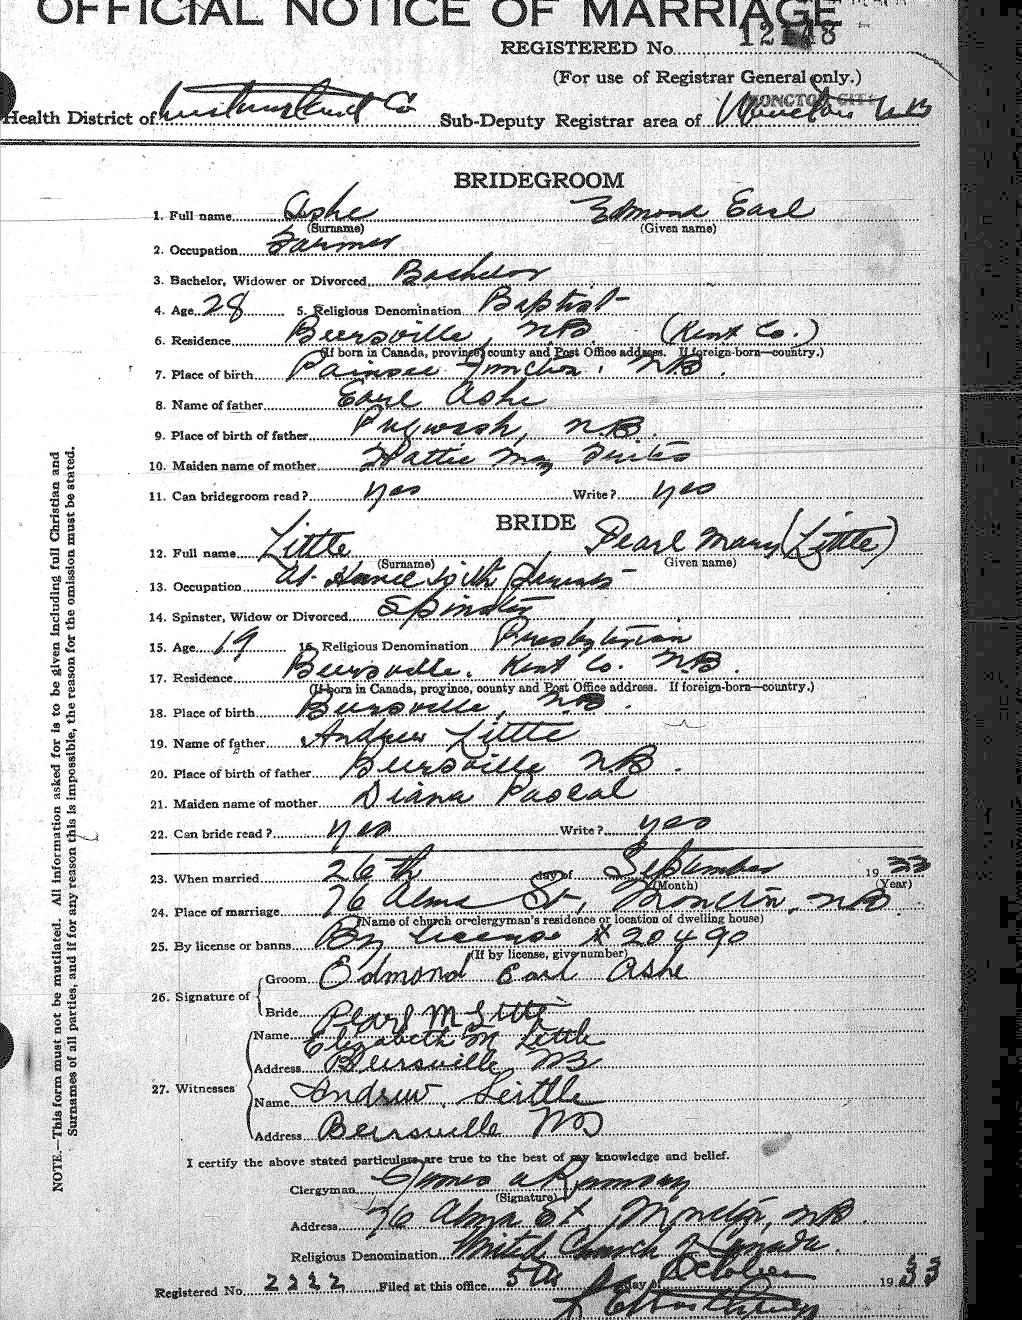 OFFICIAL NOTICE OF MARRIAGE
REGISTERED No.
(For use of Registrar General only.)
MONCTON CITY
Health District of Westmorland Co Sub-Deputy Registrar area of Moncton NB
BRIDEGROOM
1. Full name Ashe Edmond Earl
(Surname) (Given name)
2. Occupation Farmer
3. Bachelor, Widower or Divorced Bachelor
4. Age 28 5. Religious Denomination Baptist
6. Residence Beersville, NB. (Kent Co.)
(If born in Canada, province, county and Post Office address. If foreign-born—country.)
7. Place of birth Painsec Junction, NB.
8. Name of father Earl Ashe
9. Place of birth of father Pugwash, NB.
10. Maiden name of mother Hattie May Trites
11. Can bridegroom read? yes Write? yes
BRIDE
12. Full name Little Pearl Mary (Little)
(Surname) Given name)
13. Occupation At Home with Parents
14. Spinster, Widow or Divorced Spinster
15. Age 19 16. Religious Denomination Presbyterian
17. Residence Beersville, Kent Co. NB.
(If born in Canada, province, county and Post Office address. If foreign-born—country.)
18. Place of birth Beersville, NB.
19. Name of father Andrew Little
20. Place of birth of father Beersville NB.
21. Maiden name of mother Diana Pascal
22. Can bride read? yes Write? yes
23. When married 26th day of September 19 33
(Month) (Year)
24. Place of marriage 76 Alma St, Moncton, NB
(Name of church or clergyman's residence or location of dwelling house)
25. By license or banns By license # 20490
(If by license, give number)
26. Signature of Groom Edmond Earl Ashe
Bride Pearl M Little
27. Witnesses Name Elizabeth M Little
Address Beersville NB
Name Andrew Little
Address Beersville NB
I certify the above stated particulars are true to the best of my knowledge and belief.
Clergyman James A Ramsay
(Signature)
Address 76 Alma St, Moncton, NB.
Religious Denomination United Church of Canada.
Registered No. 2222 Filed at this office 5th day of October 19 33
NOTE.—This form must not be mutilated. All information asked for is to be given including full Christian and
Surnames of all parties, and if for any reason this is impossible, the reason for the omission must be stated.